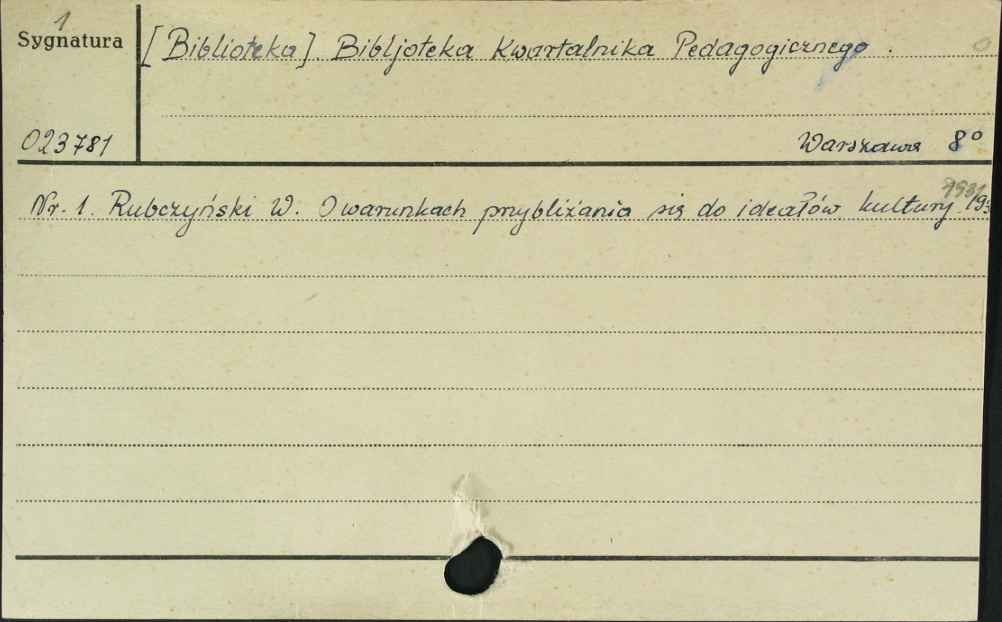 1
Sygnatura
[Biblioteka]. Bibljoteka Kwartalnika Pedagogicznego.
023781
Warszawa 8°
1931
Nr. 1. Rubczyński W. O warunkach przybliżania się do ideałów kultury